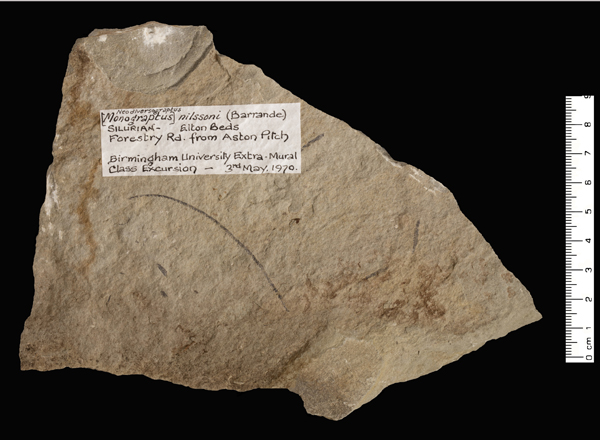 Neodiversograptus
[Monograptus] nilssoni (Barrande)
SILURIAN - Elton Beds
Forestry Rd. from Aston Pitch
Birmingham University Extra-Mural
Class Excursion - 3rd May, 1970.
9
8
7
6
5
4
3
2
1
0 cm